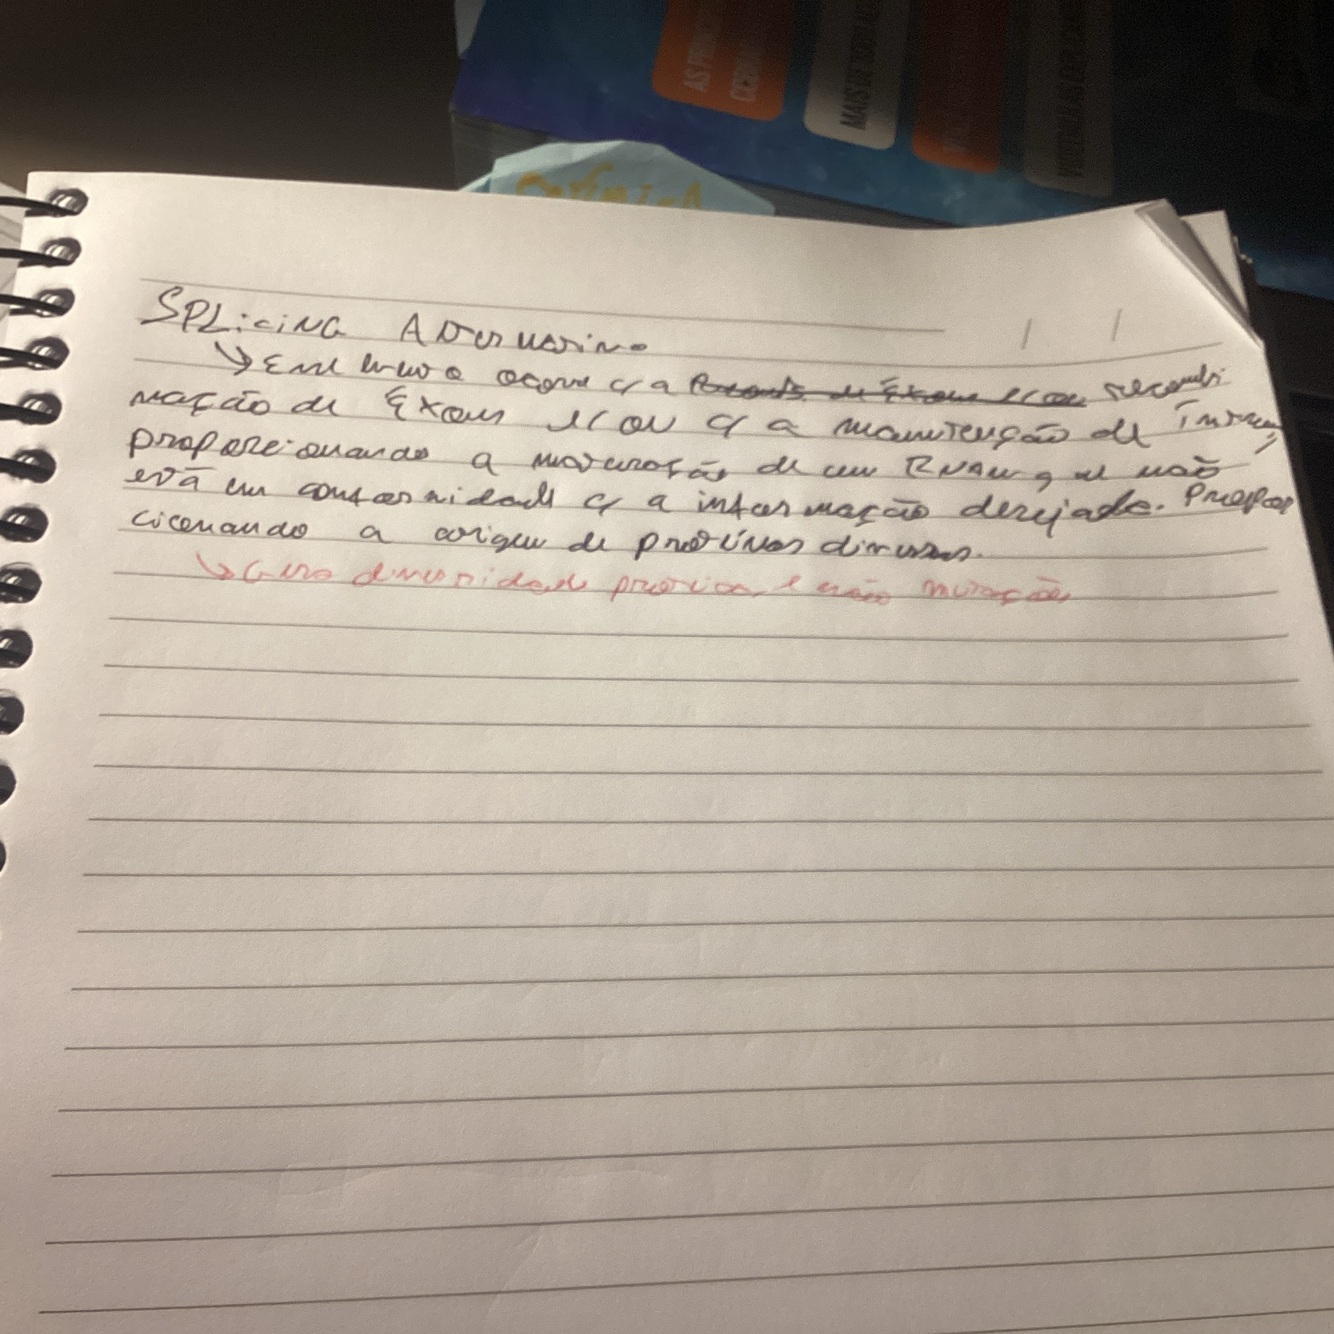 AS PRINCI
MAIS DE
SPLicing Alternativo
↳ Este evento ocorre c/ a recombi
nação de Éxons e/ou c/ a manutenção de Íntrons,
proporcionando a maturação de um RNAm q ue não
está em conformidade c/ a informação desejada. Propor
cionando a origem de proteínas diversas.
↳ Gera diversidade proteica e não mutação